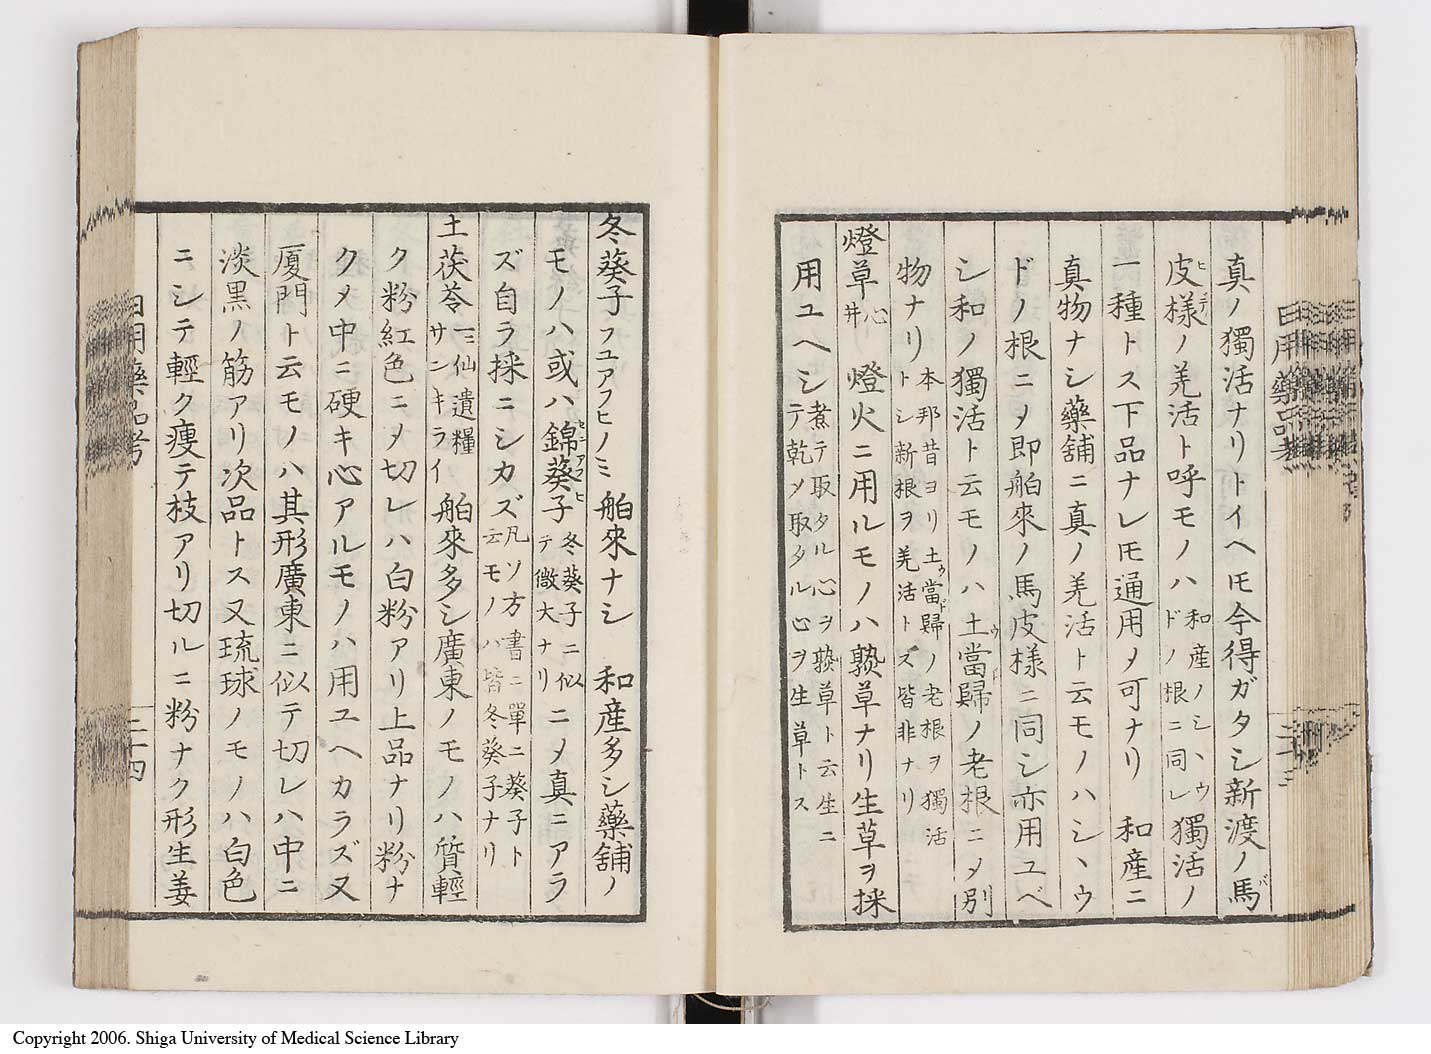 真ノ獨活ナリトイヘ𪜈今得ガタシ新渡ノ馬バ
皮ヒ様デノ羌活ト呼モノハ和産ノシヽウドノ根ニ同レ獨活ノ
一種トス下品ナレ𪜈通用メ可ナリ 和産ニ
真物ナシ藥舗ニ真ノ羌活ト云モノハシヽウ
ドノ根ニメ即舶來ノ馬皮様ニ同シ亦用ユベ
シ和ノ獨活ト云モノハ土當歸ウドノ老根ニメ別
物ナリ本邦昔ヨリ土當歸ウドノ老根ヲ獨活トシ新根ヲ羌活トス皆非ナリ
燈草井心 燈火ニ用ルモノハ𤍠草ナリ生草ヲ採
用ユヘシ煮テ取タル心ヲ𤍠草ト云生ニテ乾メ取タル心ヲ生草トス
日用藥品考
冬葵子フユアフヒノミ 舶來ナシ 和産多シ藥舗ノ
モノハ或ハ錦葵子セニアフヒ冬葵子ニ似テ微大ナリニメ真ニアラ
ズ自ラ採ニシカズ凡ソ方書ニ單ニ葵子ト云モノハ皆冬葵子ナリ
土茯苓一名仙遺糧サンキライ 舶來多シ廣東ノモノハ質輕
ク粉紅色ニメ切レハ白粉アリ上品ナリ粉ナ
クメ中ニ硬キ心アルモノハ用ユヘカラズ又
厦門ト云モノハ其形廣東ニ似テ切レハ中ニ
淡黒ノ筋アリ次品トス又琉球ノモノハ白色
ニシテ輕ク瘦テ枝アリ切ルニ粉ナク形生姜
日用藥品考
二十四
Copyright 2006. Shiga University of Medical Science Library